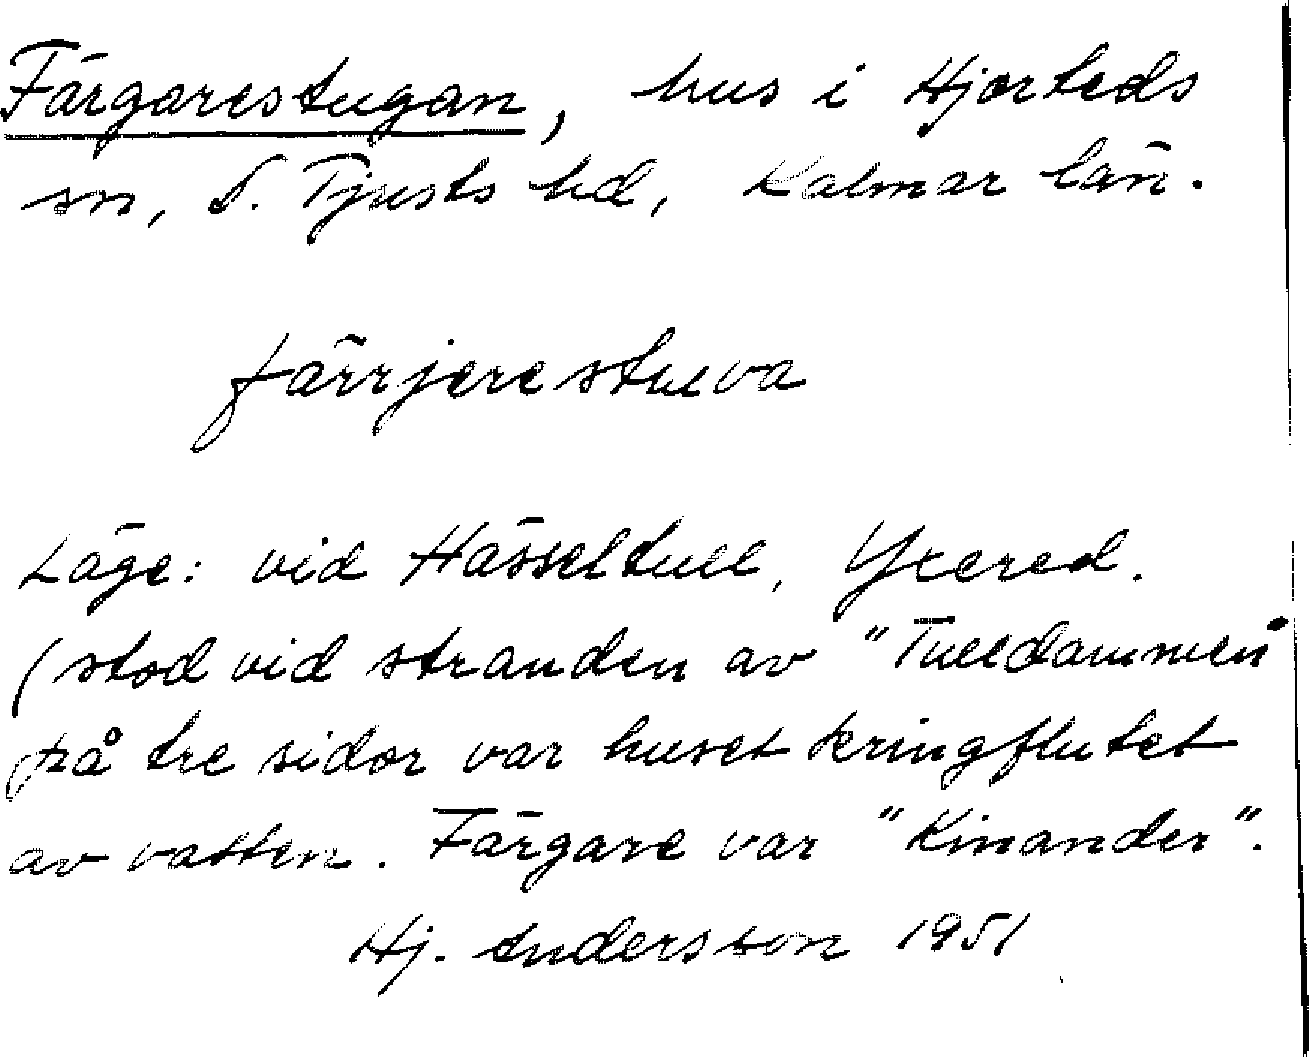 Färgarestugan, hus i Hjorteds
sn, S. Tjusts hd, Kalmar län.
färrjerestuva
Läge: vid Hässeltull, Yxered.
(stod vid stranden av "Tulldammen"
på tre sidor var huset kringflutet
av vatten. Färgare var "Kinander".
Hj. Andersson 1951